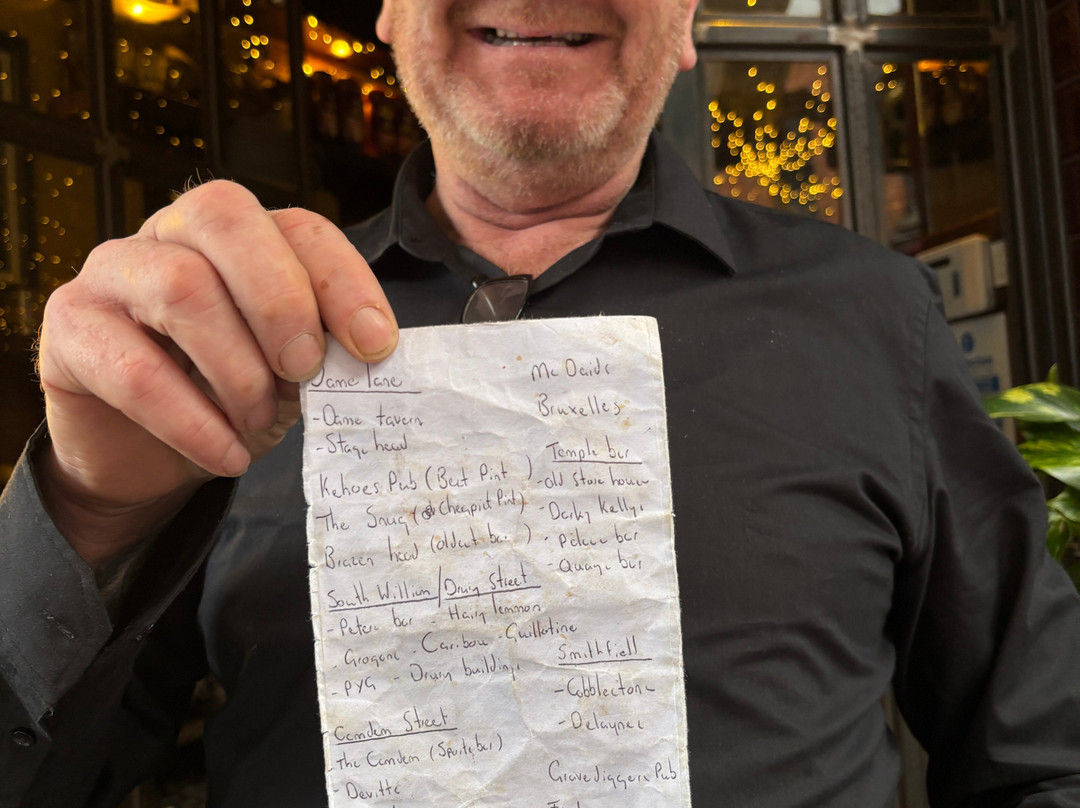 Dame lane
- Dame tavern
- Stage head
Kehoes Pub (Best Pint )
The Snug (Cheapist Pint)
Brazen head (oldest bar )
South William / Drury Street
- Peters bar - Hairy lemmon
- Grogans - Caribou - Guillotine
- PYG - Drury buildings
Camden Street
- The Camden (Sports bar)
- Devitts
Mc Daids
Bruxelles
Temple bar
- old Storehouse
- Darky Kellys
- Palace bar
- Quays bar
Smithfiell
- Cobblestone
- Delaynes
Gravediggers Pub